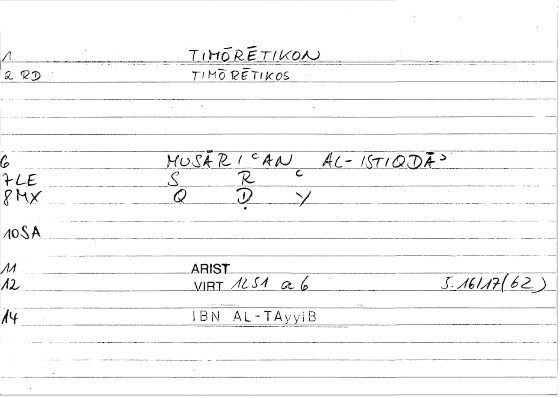 1 TIMŌRĒTIKON
2 RD TIMŌRĒTIKOS
6 MUSĀRIʿAN AL-ISTIQDĀʾ
7LE S R ʿ
8MX Q Ḍ Y
10SA
11 ARIST
12 VIRT 1251 a 6 S. 16/17(62)
14 IBN AL-TAyyiB